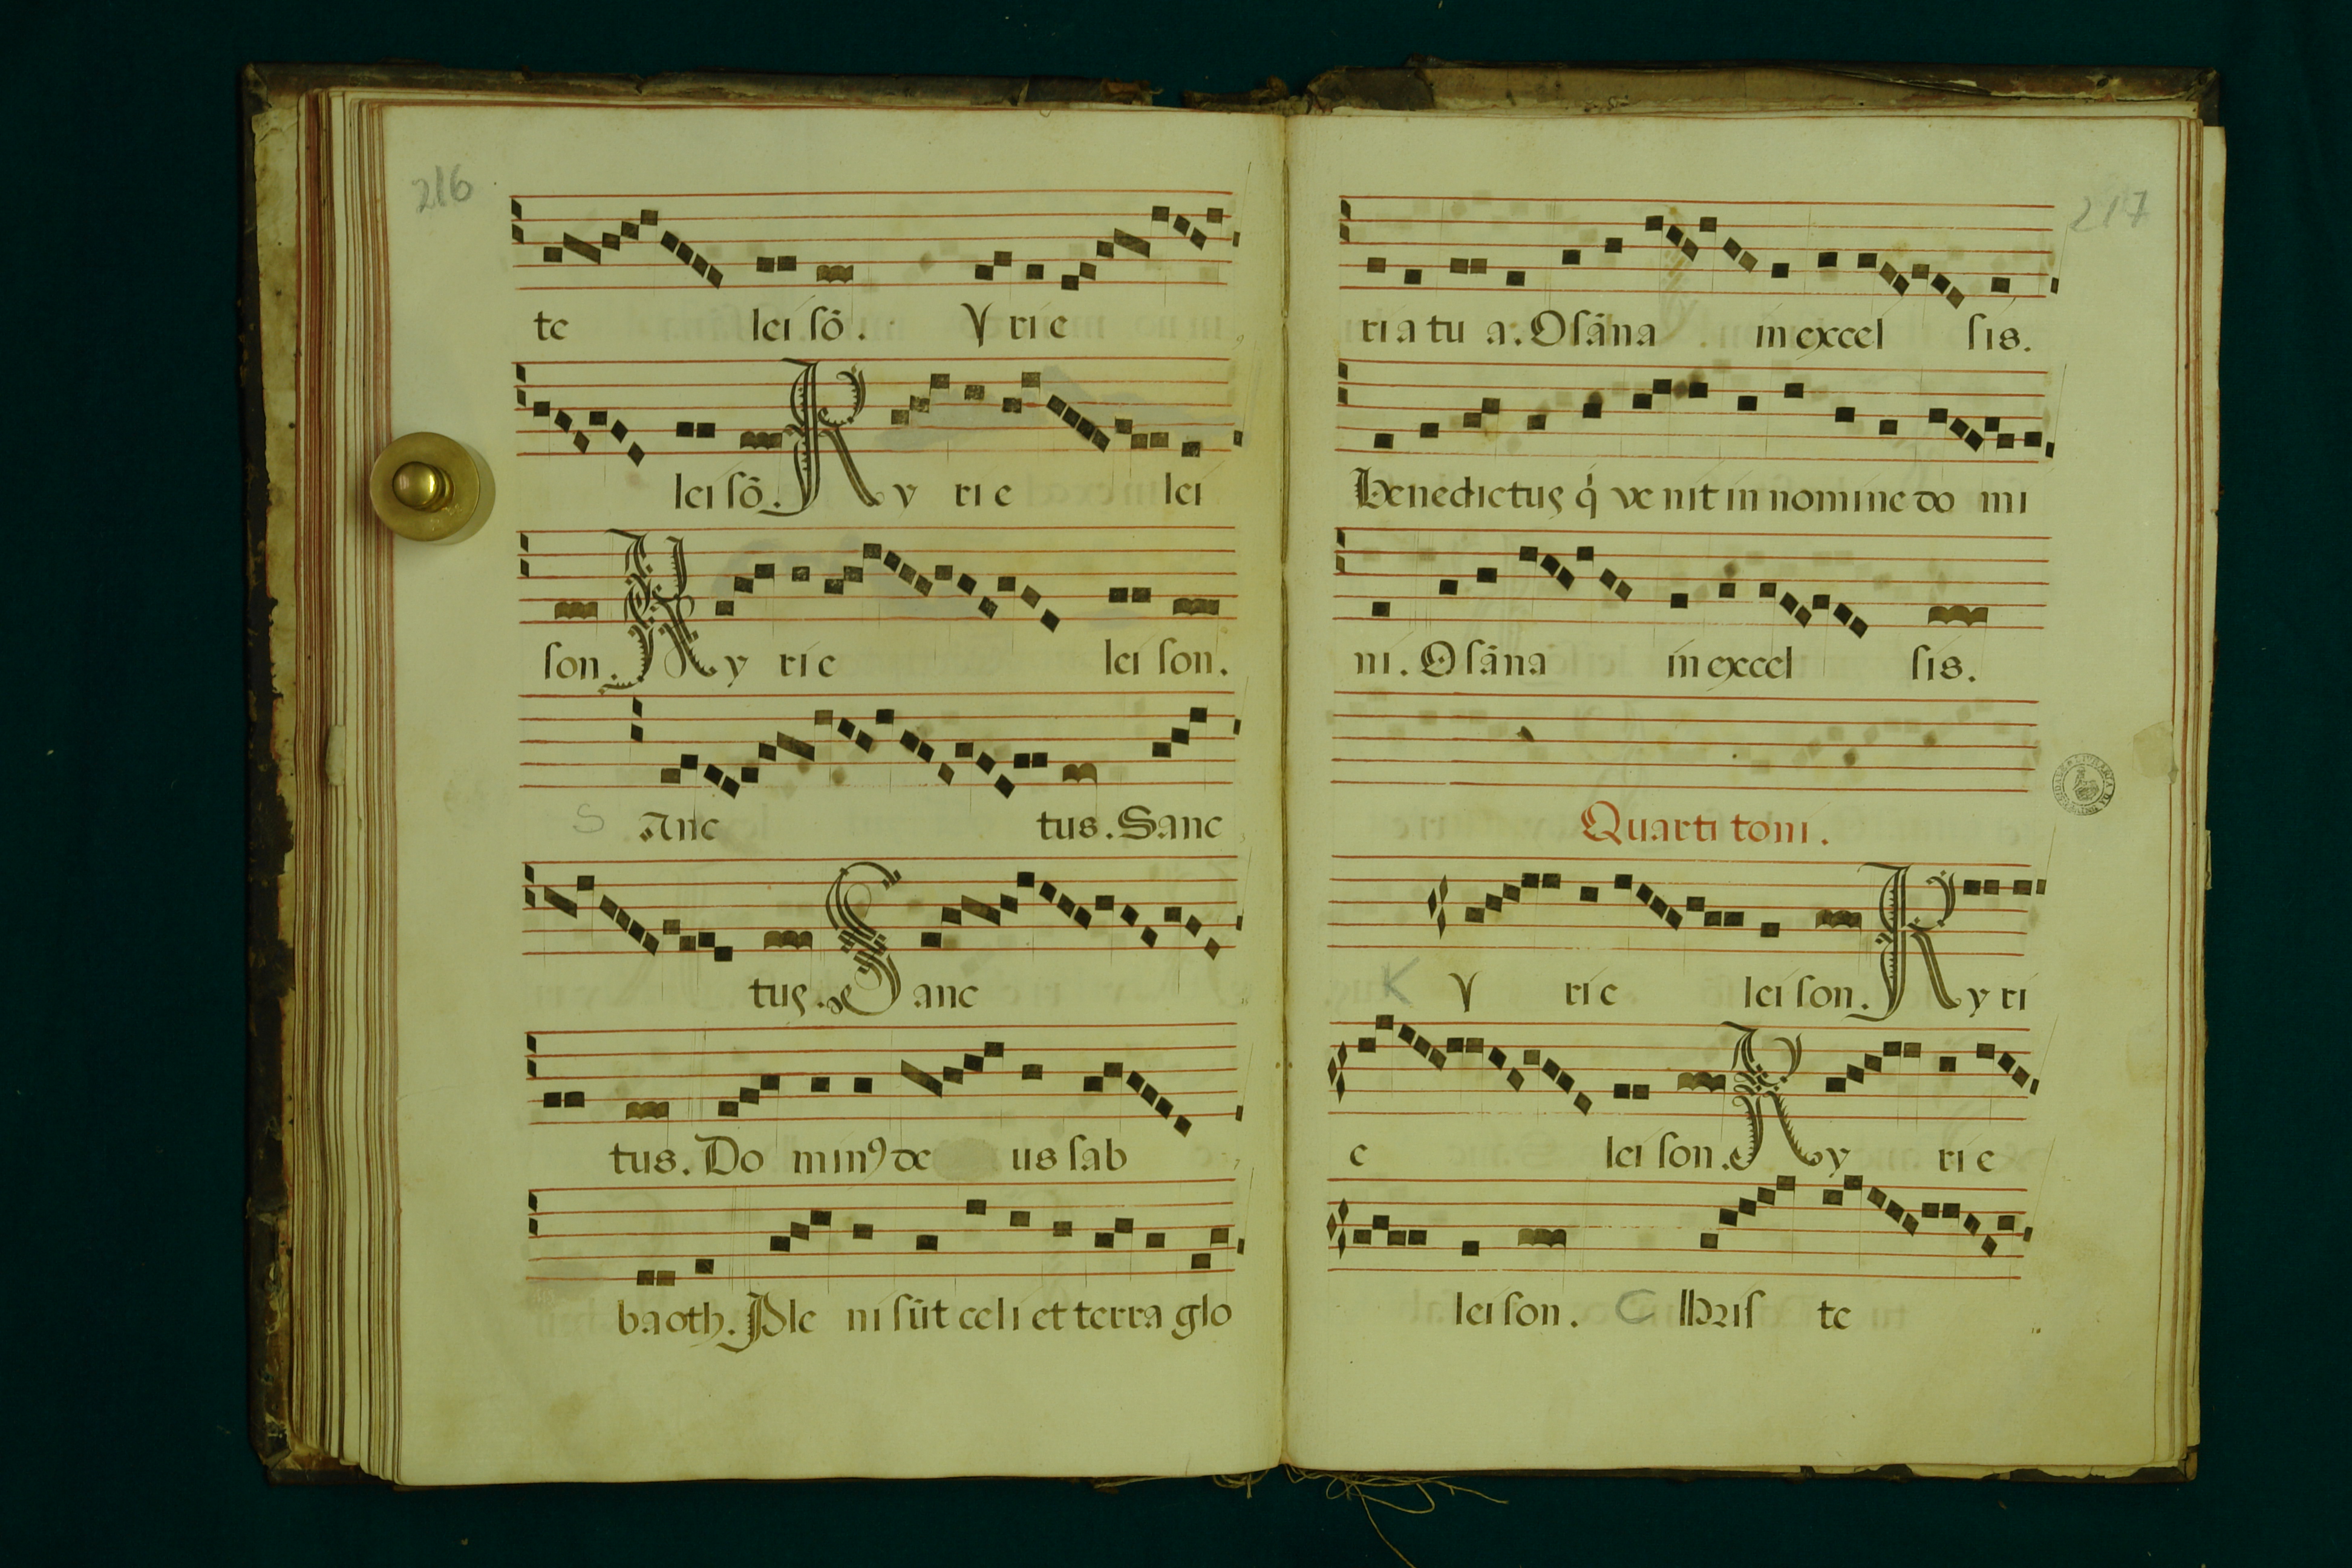 216
te lei ſõ. Y ri e
lei ſõ. Ky ri e lei
ſon. Ky ri e lei ſon.
S Anc tus. Sanc
tus. Sanc
tus. Do minꝰ de us ſab
ba oth. Ple ni ſūt celi et terra glo
217
ri a tu a. Oſāna in excel ſis.
Benedictus q̇ ve nit in nomine do mi
ni. Oſāna in excel ſis.
Quarti toni.
K Y ri e lei ſon. Ky ri
e lei ſon. Ky ri e
lei ſon. C hriſ te